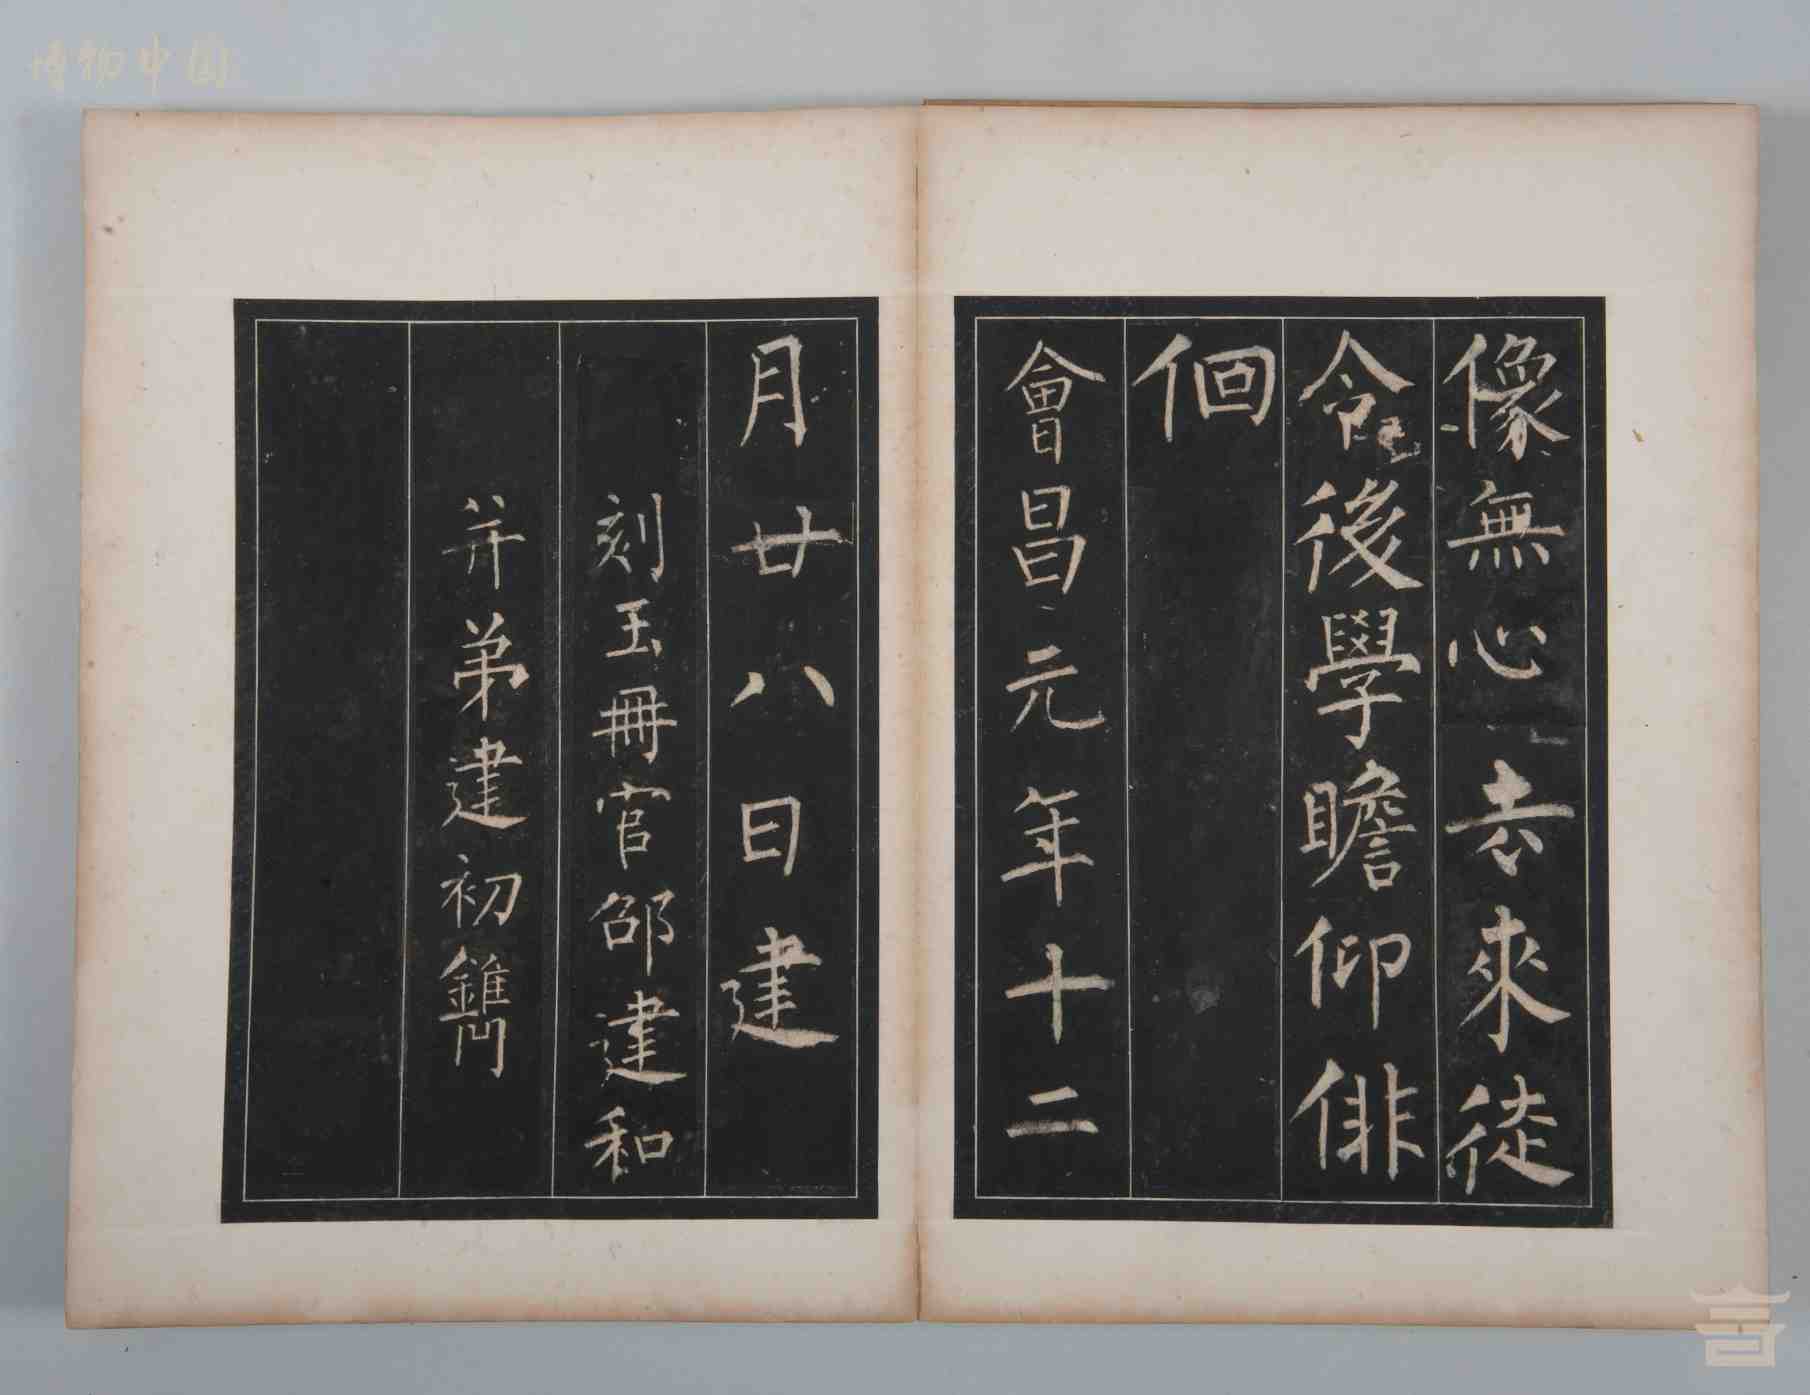 像無心去來徒
令後學瞻仰俳
佪
會昌元年十二
月廿八日建
刻玉冊官邵建和
并弟建初鐫
博物中国